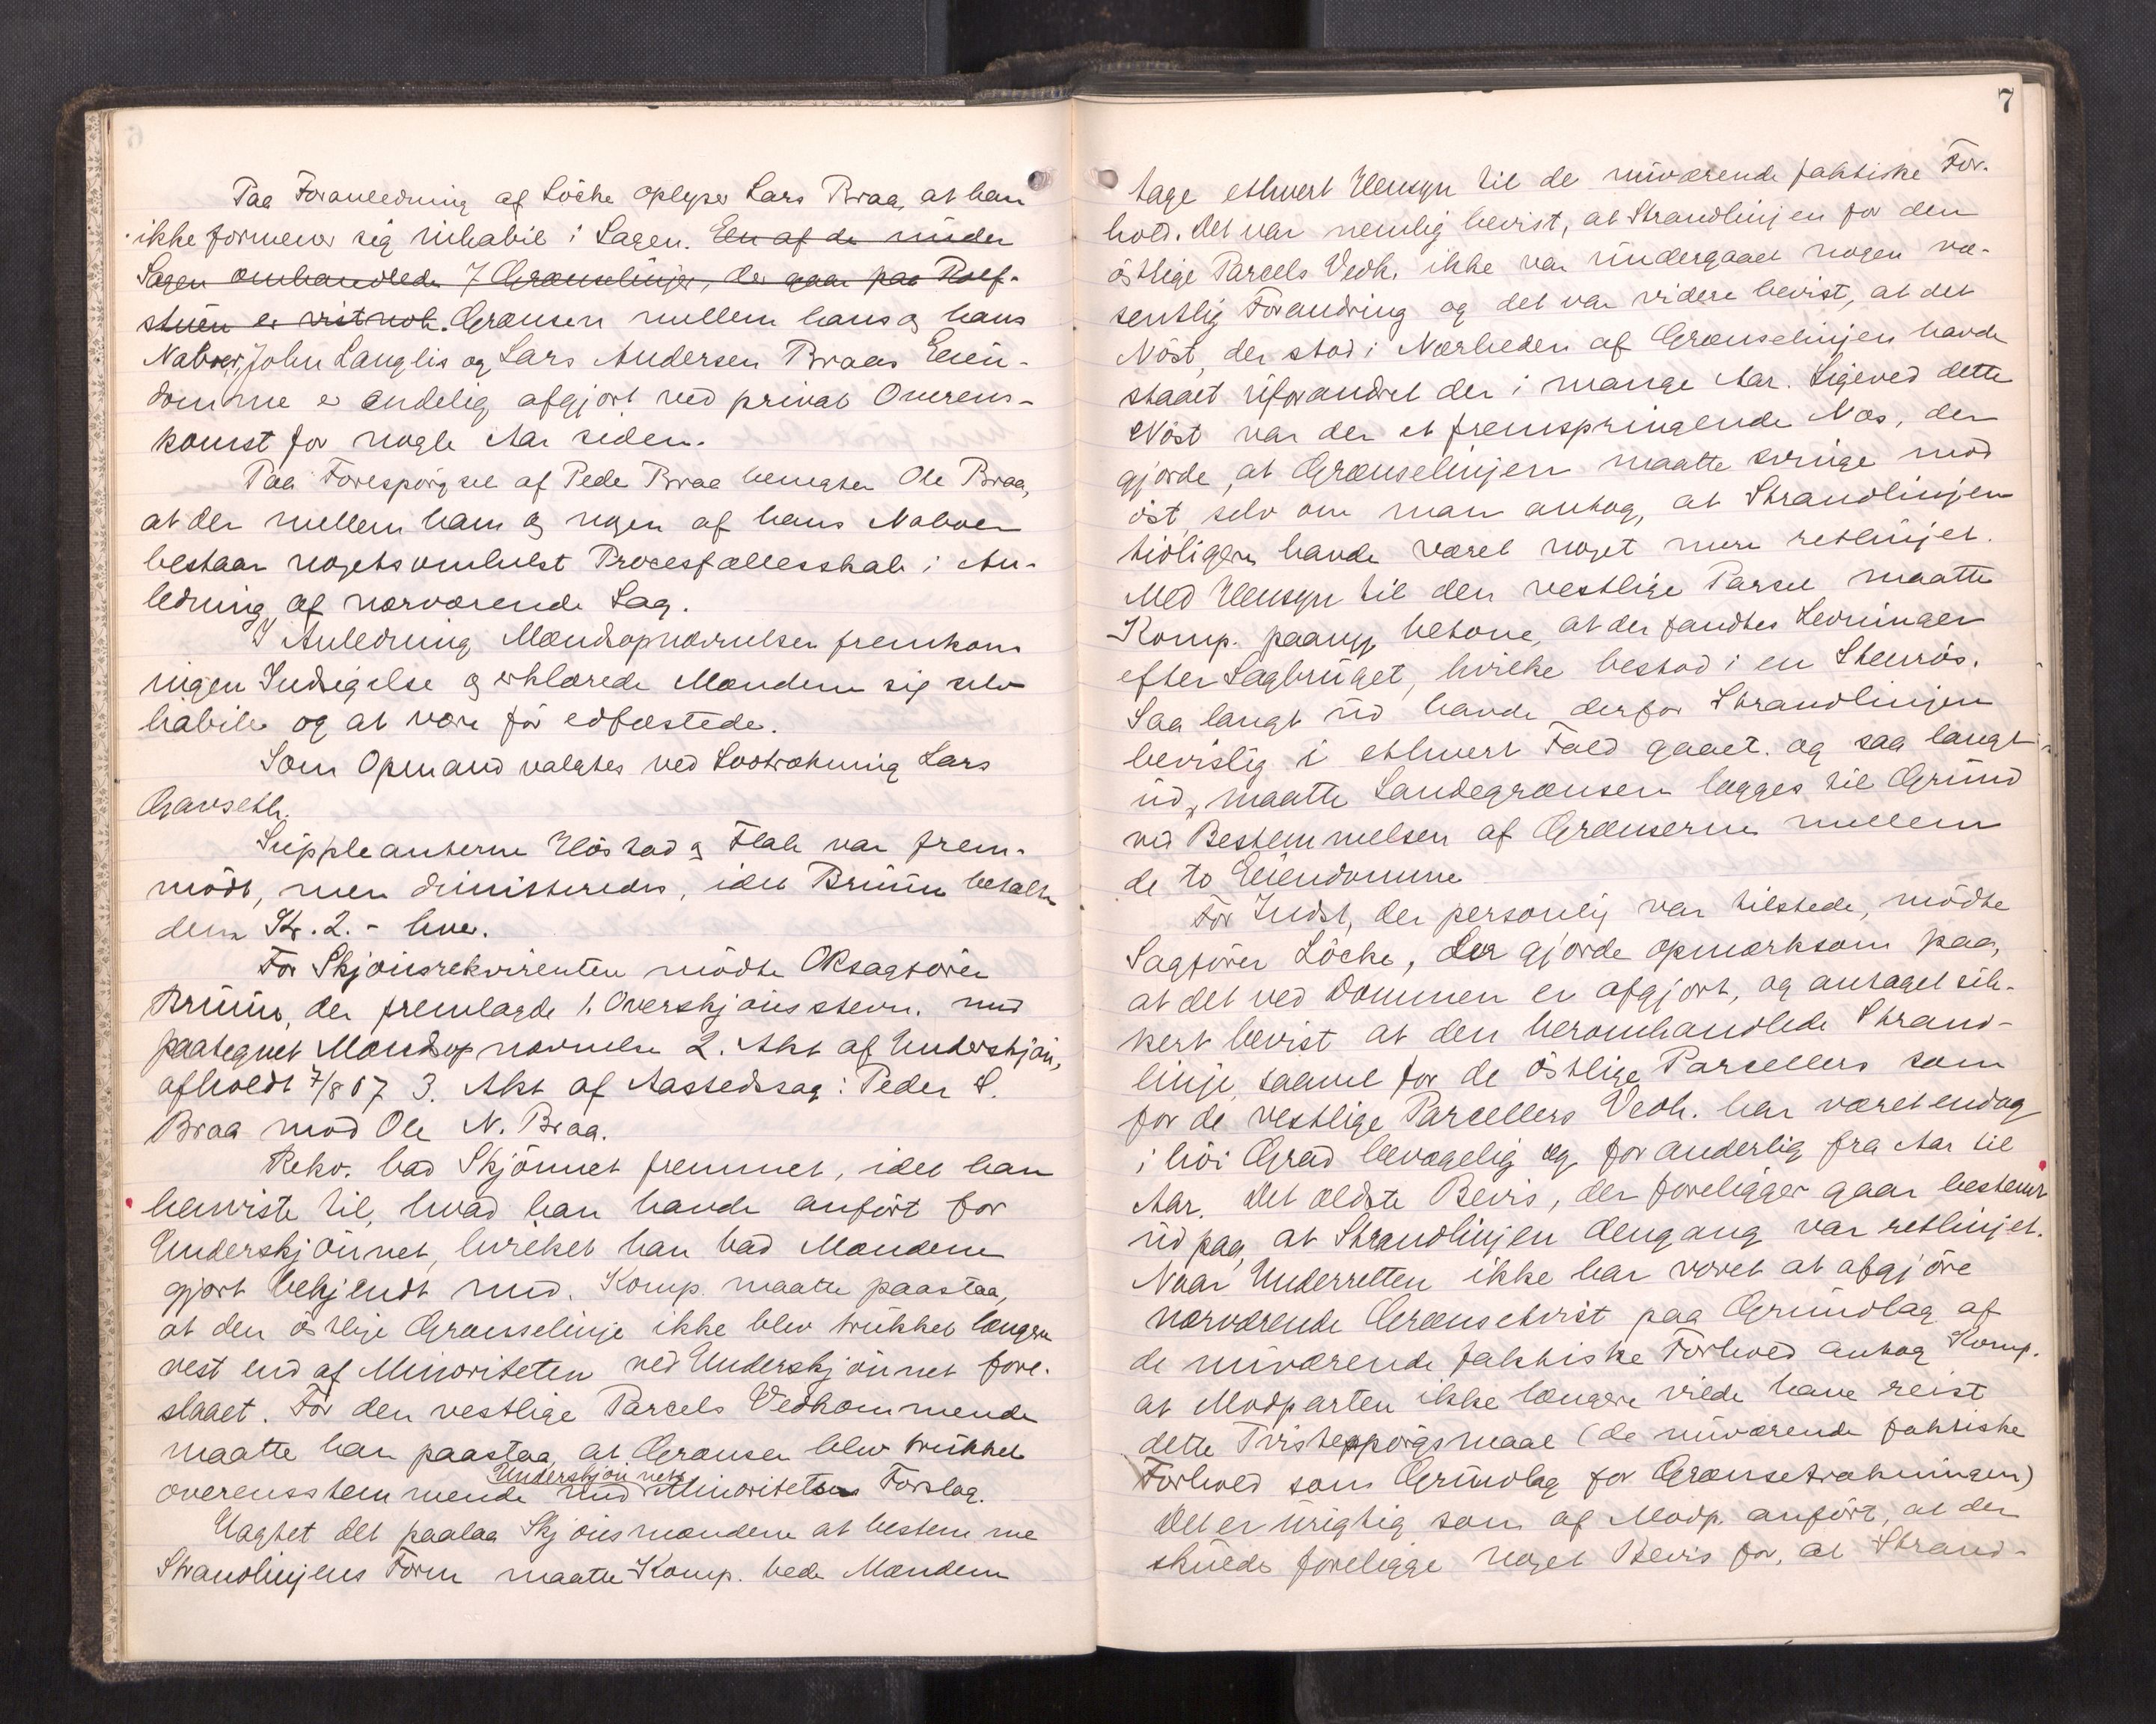 Paa Foranledning af Löcke oplyser Lars Braa, at han
ikke formener sig inhabil i Sagen. En af de under
Sagen omhandlede 7 Grænselinjer, der gaar paa
er vistnok. Grænsen mellem hans og hans
Naboer, John Langlis og Lars Andersen Braas Eien-
domme er endelig afgjort ved privat Overens-
komst for nogle Aar siden.
Paa Forespörgsel af Peder Braa benegter Ole Braa,
at der mellem ham og nogen af hans Naboer
bestaar nogetsomhelst Procesfællesskab i An-
ledning af nærværende Sag.
I Anledning Mændsopnævnelsen fremkom
ingen Indsigelse og erklærede Mændene sig selv
habile og at være för edfæstede.
Som Opmand valgtes ved Lodtrækning Lars
Gravseth.
Suppleanterne Höstad og Flak var frem-
mödt, men dimitteredes, idet Bruun betalte
dem Kr. 2.- hver.
For Skjönsrekvirenten mödte OKsagförer
Bruun, der fremlagde 1. Overskjönsstevn. med
paategnet Mændsopnævnelse 2. Akt af Underskjön,
afholdt 7/8 07 3. Akt af Aastedssag: Peder L.
Braa mod Ole N. Braa.
Rekv. bad Skjönnet fremmet, idet han
henviste til, hvad han havde anfört for
Underskjönnet, hvilket han bad Mændene
gjort bekjendt med. Komp. maatte paastaa,
at den östlige Grænselinje ikke blev trukket længere
vest end af Minoriteten ved Underskjönnet fore-
slaaet. For den vestlige Parcels Vedkommende
maatte han paastaa, at Grænsen blev trukket
Underskjönnets
overensstemmende med Minoritetens Forslag.
Uagtet det paalaa Skjönsmændene at bestemme
Strandlinjens Form maatte Komp. bede Mændene
7
tage ethvert Hensyn til de nuværende faktiske For-
hold. Det var nemlig bevist, at Strandlinjen for den
östlige Parcels Vedk. ikke var undergaaet nogen væ-
sentlig Forandring og det var videre bevist, at det
Nöst, der stod i Nærheden af Grænselinjen havde
staaet uforandret der i mange Aar. Ligeved dette
Nöst var der et fremspringende Næs, der
gjorde, at Grænselinjen maatte svinge mod
öst, selv om man antog, at Strandlinjen
tidligere havde været noget mere retlinjet.
Med Hensyn til den vestlige Parcel maatte
Komp. paany betone, at der fandtes Levninger
efter Sagbruget, hvilke bestod i en Stenrös.
Saa langt ud havde derfor Strandlinjen
bevislig i ethvert Fald gaaet. og saa langt
ud, maatte Landegrænsen lægges til Grund
ved Bestemmelsen af Grænserne mellem
de to Eiendomme
For Indst, der personlig var tilstede, mödte
Sagförer Löcke, der gjorde opmærksom paa,
at det ved Dommen er afgjort, og antaget sik-
kert bevist at den heromhandlede Strand-
linje, saavel for de östlige Parcellers som
for de vestlige Parcellers Vedk. har været endog
i höi Grad bevægelig og foranderlig fra Aar til
Aar. Det ældste Bevis, der foreligger gaar bestemt
ud paa, at Strandlinjen dengang var retlinjet.
Naar Underretten ikke har vovet at afgjöre
nærværende Grænsetvist paa Grundlag af
de nuværende faktiske Forhold antog Komp.
at Modparten ikke længere vilde have reist
dette Tvistespörgsmaal (de nuværende faktiske
Forhold som Grundlag for Grænsetrækningen)
Det er urigtig som af Modp. anfört, at der
skulde foreligge noget Bevis for, at Strand-